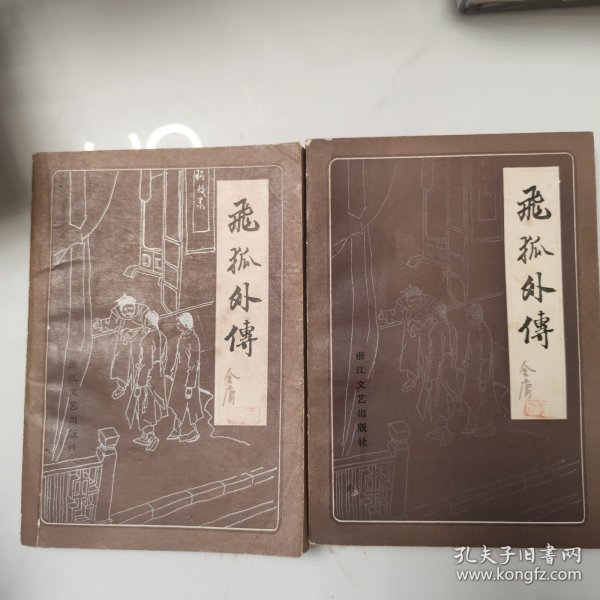 飛狐外傳
金庸
浙江文艺出版社
飛狐外傳
金庸
浙江文艺出版社
孔夫子旧书网
www.kongfz.com